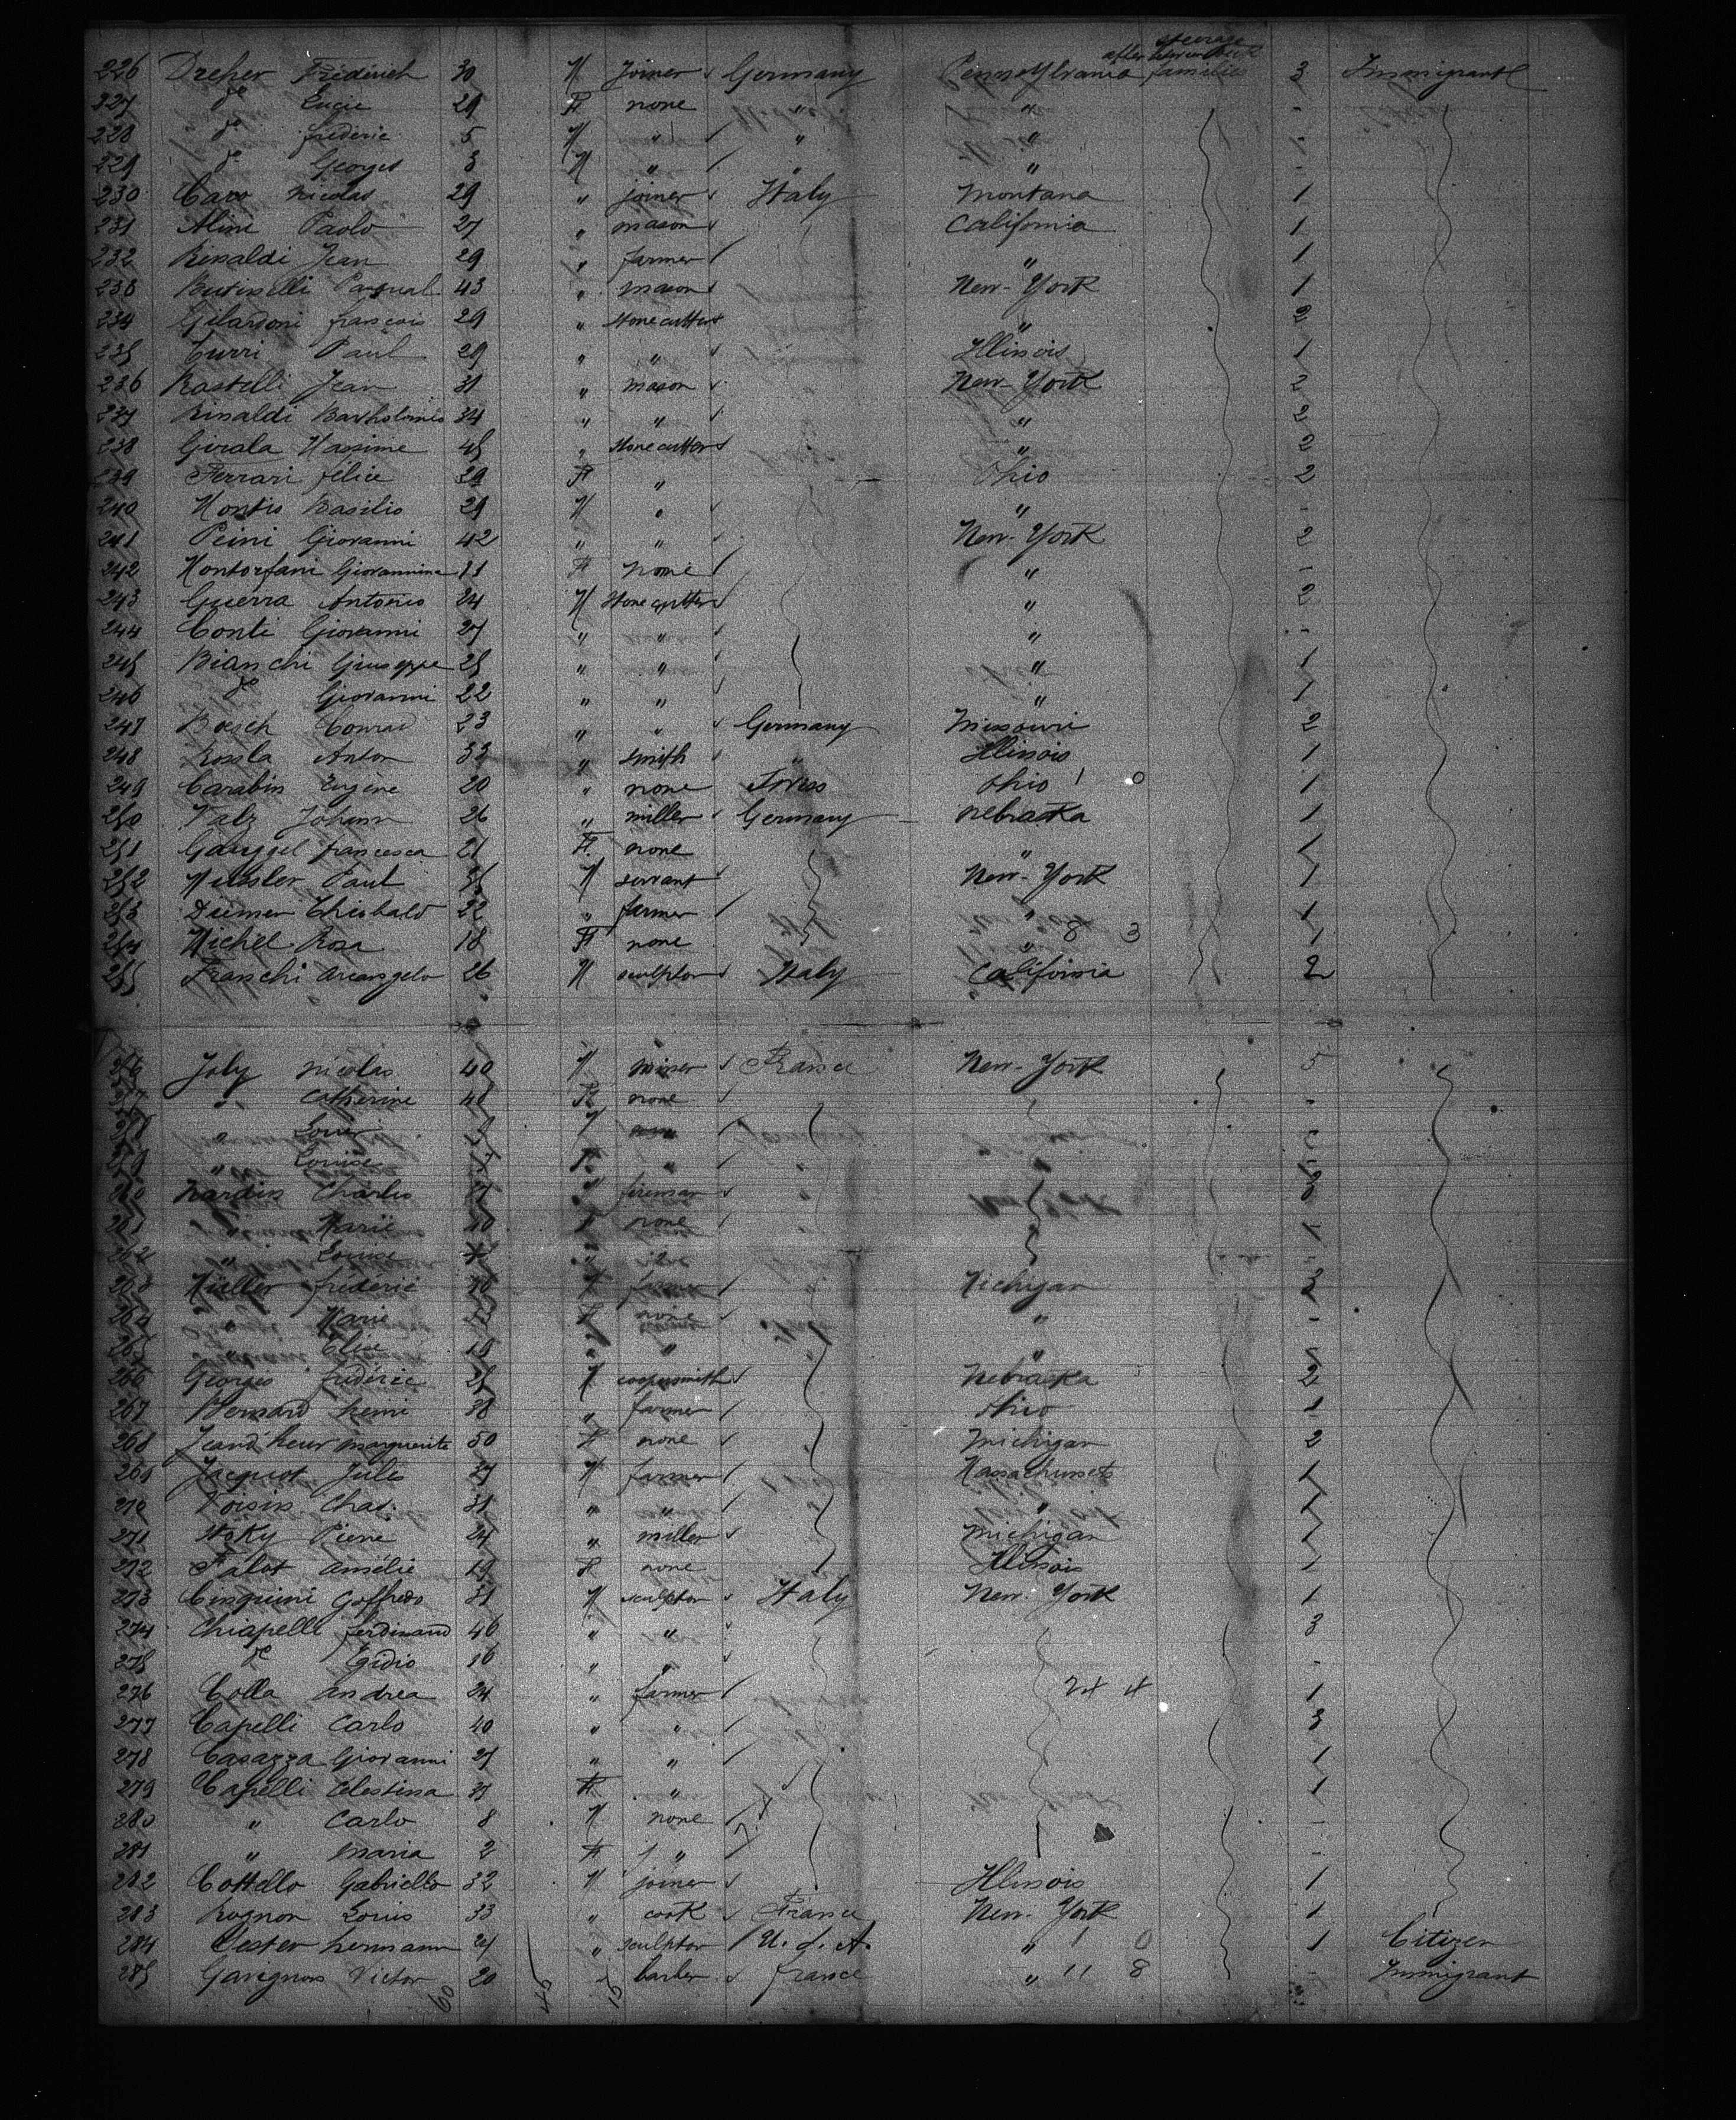 steerage
after between deck
226 Dreher Frédérich 30 M joiner Germany Pennsylvania families 3 Immigrant
227 do Lucie 29 F none " " -
228 do frédéric 5 M " " " -
229 do Georges 3 M " " " -
230 Caro Nicolas 29 " joiner Italy Montana 1
231 Alini Paolo 27 " mason California 1
232 Rinaldi Jean 29 " farmer " 1
233 Pasqual 43 " mason New-York 1
234 Gilardoni françois 29 " stonecutter " 2
235 Curri Paul 29 " " Illinois 1
236 Rastelli Jean 31 " mason New-York 2
237 Rinaldi Bartholomeo 34 " " " 2
238 Girala Massimo 45 " stonecutter " 2
239 Ferrari félice 29 F " Ohio 2
240 Montis Basilio 29 M " " -
241 Peini Giovanni 42 " " New-York 2
242 Montorfani Giovannina 11 F none " -
243 Guerra Antonio 24 M stonecutter " 2
244 Conti Giovanni 27 " " " -
245 Bianchi Giuseppe 25 " " " 1
246 do Giovanni 22 " " " 1
247 Boesch Conrad 23 " " Germany Missouri 2
248 Rossla Anton 33 " smith " Illinois 1
249 Carabin Eugène 20 " none Swiss Ohio 1 0 1
250 Valz Johann 26 " miller Germany Nebraska 1
251 francesca 21 F none " 1
252 Paul M servant New-York 1
253 Diemer Thiobald 22 " farmer " 1
254 Michel Rosa 18 F none " 8 3 1
255 Franchi Arcangelo 26 M sculptor Italy California 2
256 Joly Nicolas 40 M miner France New-York 5
" Catherine 48 F none -
" Louis
" Louise F "
Nardin Charles fireman 3
261 " Marie 40 F none
262 " Louise "
263 Muller frédéric M farmer Michigan 3
264 " Marie F none " -
265 " Elise 19 " " "
266 Georges frédéric 25 M coopersmith Nebraska 2
267 Bernard henri 38 " farmer Ohio 1
268 Jeand'heur Marguerite 50 F none Michigan 2
269 Jacquot Jules 37 M farmer Massachussets 1
270 Voisin Chas. 31 " " " 1
271 Stoky Pierre 24 " miller Michigan 1
272 Falot Amélie 19 F none Illinois 1
273 Cinquini Goffredo 31 M sculptor Italy New-York 1
274 Chiapelli ferdinand 46 " " 3
275 do Egidio 16 " " -
276 Colla Andrea 24 " farmer 24 4 1
277 Capelli Carlo 40 " " 3
278 Casazza Giovanni 27 " " 1
279 Capelli Celestina 37 F " 1
280 " Carlo 8 M none -
281 " Maria 2 F " -
282 Cottello Gabriello 32 M joiner Illinois 1
283 Rognon Louis 33 " cook France New-York 1
284 Oester hermann 24 " sculptor U.S.A. " 1 0 1 Citizen
285 Victor 20 barber france " 11 8 - Immigrant
60 45 15